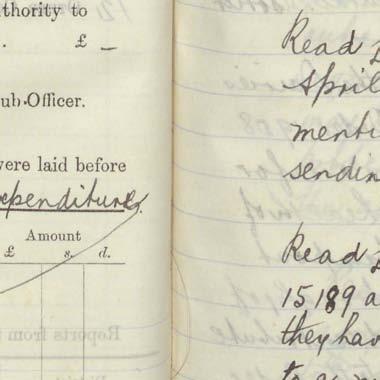 thority to
. £ –
ub-Officer.
were laid before
ependiture.
Amount
£ s. d.
Read
April
menti
sendin
Read
15189 a
they hav